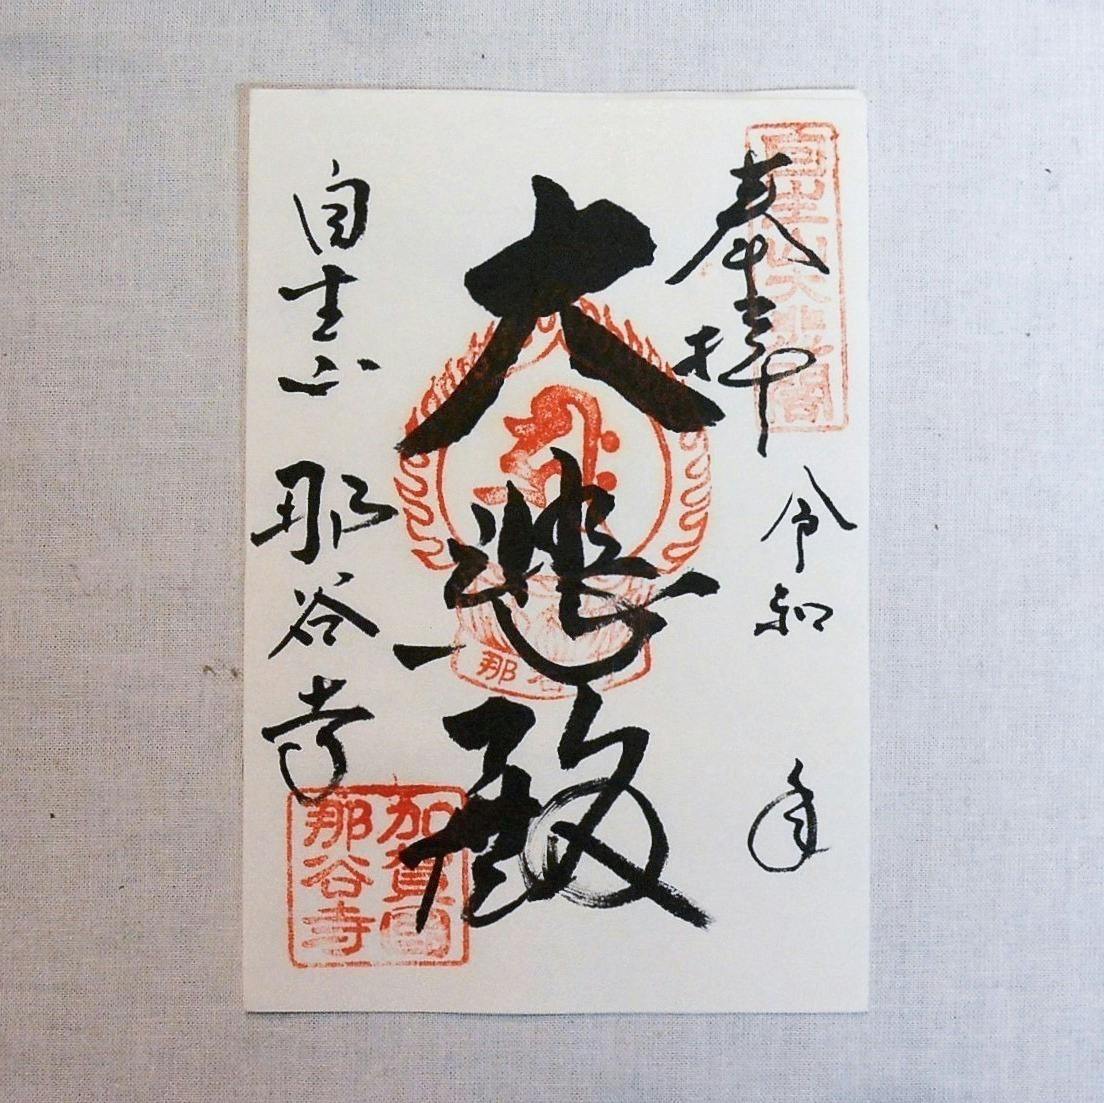 自生山大悲閣
奉拝
令和 年
大悲殿
那谷寺
自生山 那谷寺
加賀國
那谷寺